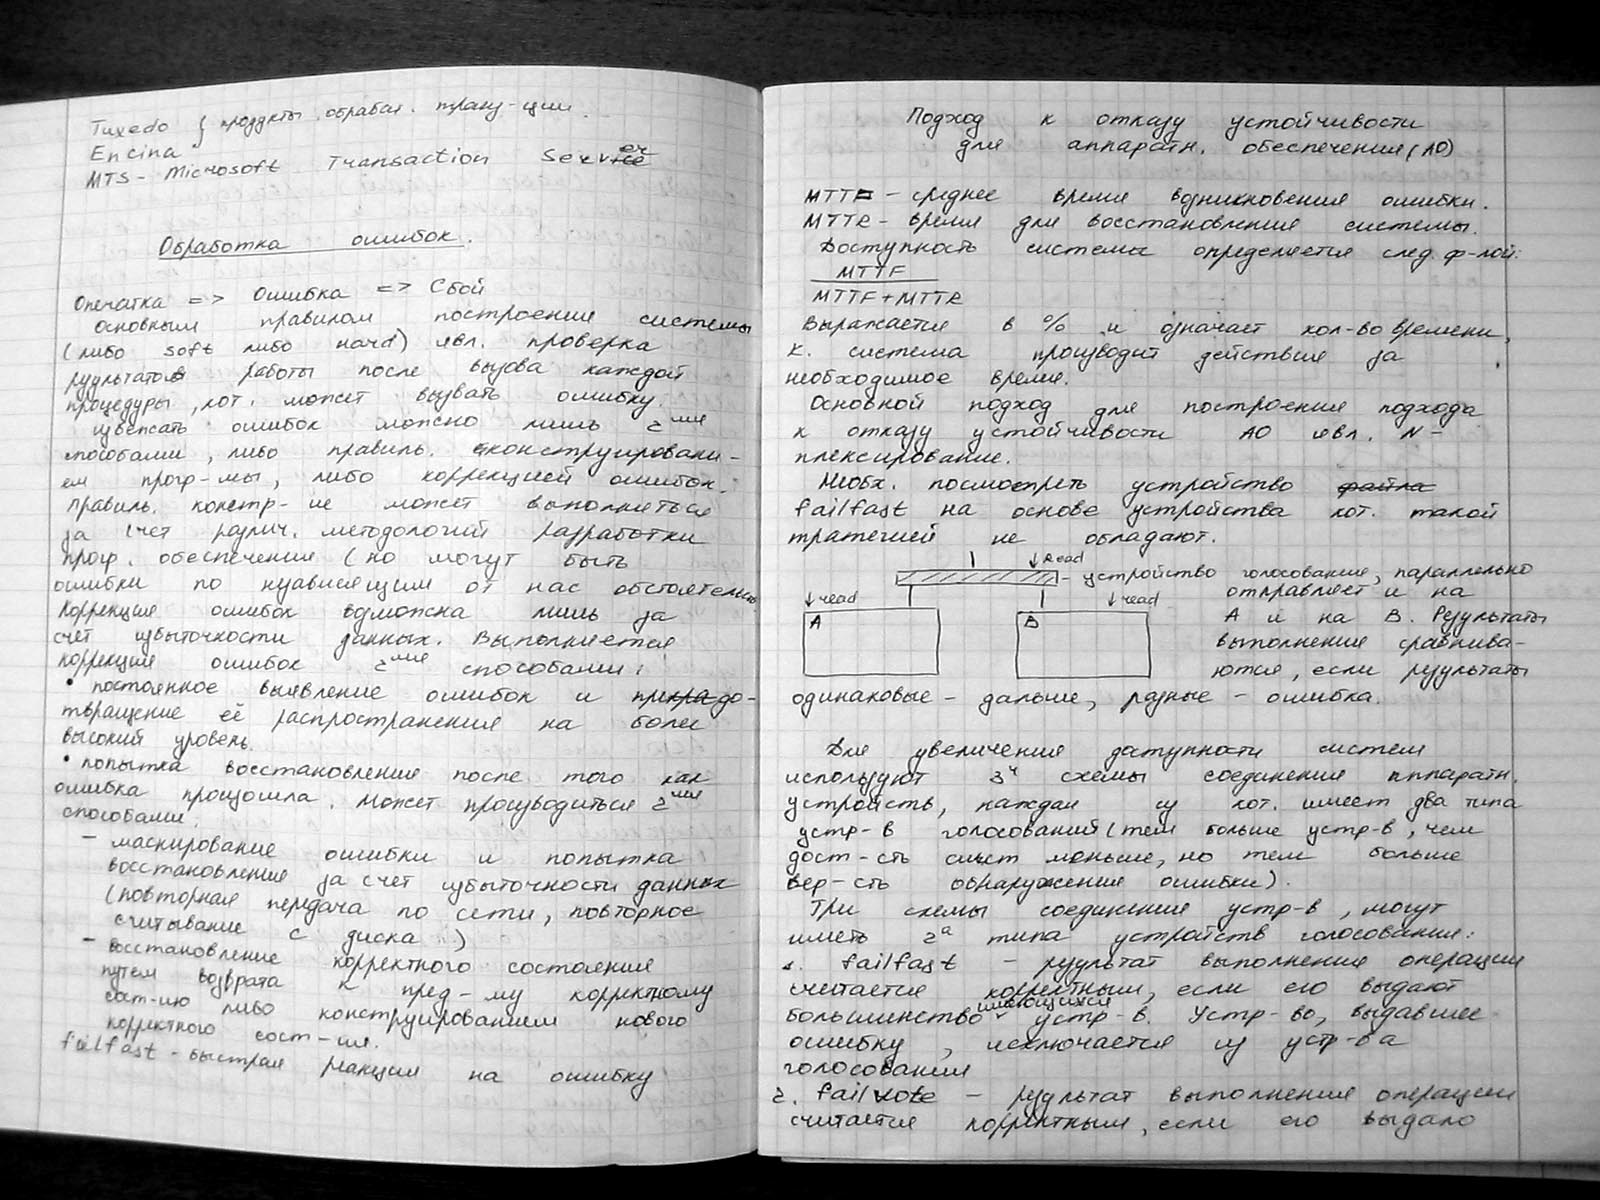 Tuxedo } продукты обработ. транз-ции
Encina
MTS - Microsoft Transaction Server
Обработка ошибок.
Опечатка => Ошибка => Сбой
Основным правилом построения системы
(либо soft либо hard) явл. проверка
результатов работы после вызова каждой
процедуры, кот. может вызвать ошибку.
избежать ошибок можно лишь 2мя
способами, либо правиль. сконструировани-
ем прогр-мы, либо коррекцией ошибок.
Правиль. констр-ие может выполниться
за счет различ. методологий разработки
прогр. обеспечения (но могут быть
ошибки по независящим от нас обстоятельс.
Коррекция ошибок возможна лишь за
счет избыточности данных. Выполняется
коррекция ошибок 2мя способами:
• постоянное выявление ошибок и предо-
твращение её распространения на более
высокий уровень.
• попытка восстановления после того как
ошибка произошла. Может производиться 2мя
способами:
- маскирование ошибки и попытка
восстановления за счет избыточности данных
(повторная передача по сети, повторное
считывание с диска)
- восстановление корректного состояния
путем возврата к пред-му корректному
сост-ию либо конструированием нового
корректного сост-ия.
failfast - быстрая реакция на ошибку
Подход к отказу устойчивости
для аппаратн. обеспечения (АО)
MTTF - среднее время возникновения ошибки.
MTTR - время для восстановления системы.
Доступность системы определяется след. ф-лой:
MTTF
MTTF + MTTR
Выражается в % и означает кол-во времени,
к. система производит действия за
необходимое время.
Основной подход для построения подхода
к отказу устойчивости АО явл. N-
плексирование.
Необх. посмотреть устройство файла
failfast на основе устройства кот. такой
тратегией не обладают.
↓ Read
- устройство голосования, параллельно
отправляет и на
↓ read ↓ read
A B А и на В. Результаты
выполнения сравнива-
ются, если результаты
одинаковые - дальше, разные - ошибка.
Для увеличения доступности систем
используют 3и схемы соединения аппаратн.
устройств, каждая из кот. имеет два типа
устр-в голосований (тем больше устр-в, чем
дост-сть сист меньше, но тем больше
вер-сть обнаружения ошибки).
Три схемы соединения устр-в, могут
иметь 2а типа устройств голосования:
1. failfast - результат выполнения операции
считается корректным, если его выдают
большинство имеющихся устр-в. Устр-во, выдавшее
ошибку, исключается из устр-ва
голосования
2. failvote - результат выполнения операции
считается корректным, если его выдало